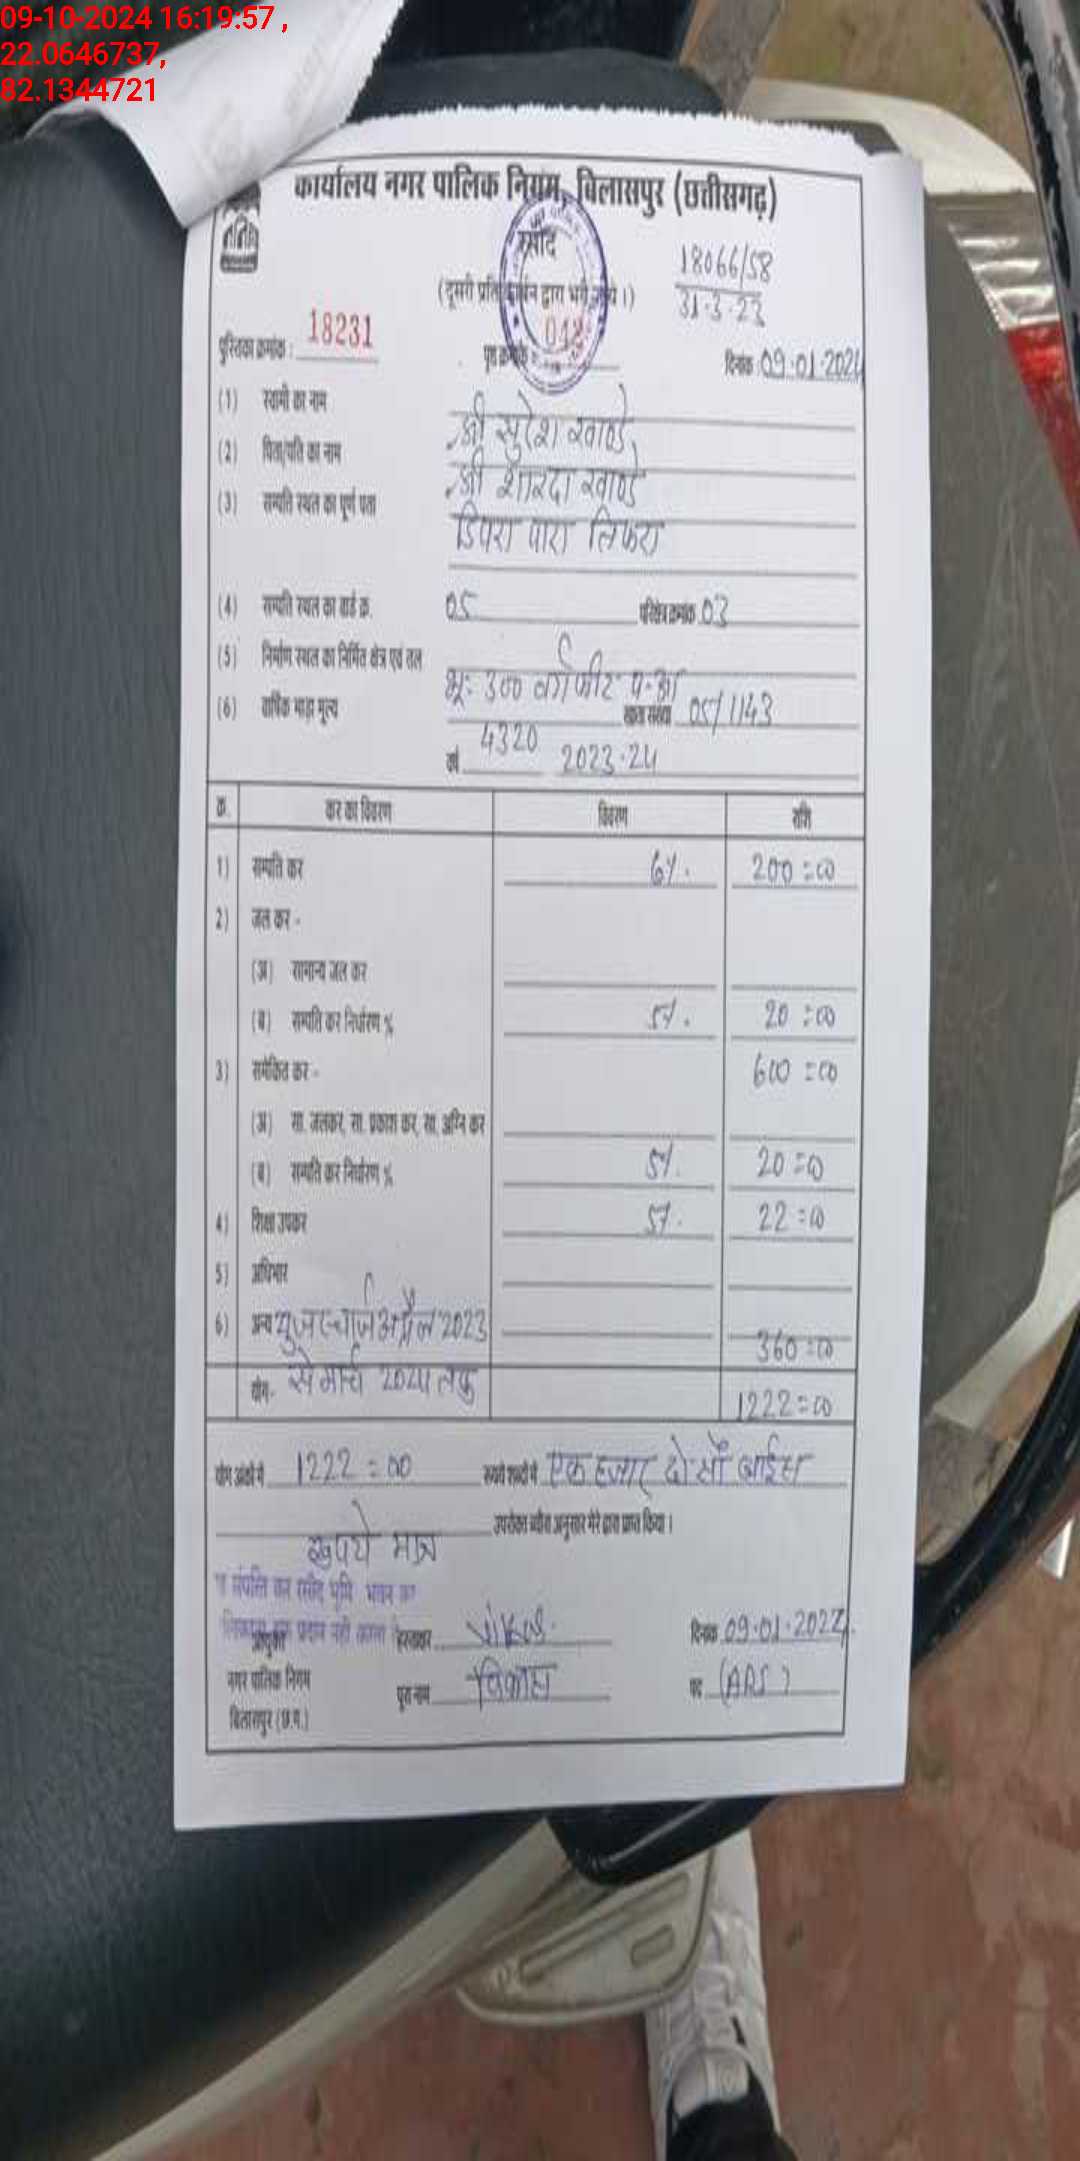 09-10-2024 16:19:57 ,
22.0646737,
82.1344721
कार्यालय नगर पालिक निगम, बिलासपुर (छत्तीसगढ़)
रसीद
18066/58
31-3-23
(दूसरी प्रति कार्बन द्वारा भरी जाये।)
पुस्तिका क्रमांक : 18231
पृष्ठ क्रमांक :
दिनांक : 09-01-2024
(1) स्वामी का नाम श्री सुरेश खाण्डे
(2) पिता/पति का नाम श्री शारदा खाण्डे
(3) सम्पति स्थल का पूर्ण पता डिपरा पारा तिफरा
(4) सम्पति स्थल का वार्ड क्र. 05 परिक्षेत्र क्रमांक 03
(5) निर्माण स्थल का निर्मित क्षेत्र एवं तल भू: 300 वर्गफीट
(6) वार्षिक भाड़ा मूल्य 4320 खाता संख्या 05/1143
वर्ष 2023-24
क्र. कर का विवरण विवरण राशि
1) सम्पति कर 6%. 200=00
2) जल कर -
(अ) सामान्य जल कर
(ब) सम्पति कर निर्धारण % 5%. 20=00
3) समेकित कर - 600=00
(अ) सा. जलकर, सा. प्रकाश कर, सा. अग्नि कर
(ब) सम्पति कर निर्धारण % 5%. 20=00
4) शिक्षा उपकर 5%. 22=00
5) अधिभार
6) अन्य युजरचार्ज अप्रैल 2023 360=00
से मार्च 2024 तक
योग- 1222=00
योग अंकों में 1222=00 रूपये शब्दों में एक हजार दो सौ बाईस
रुपये मात्र उपरोक्त ब्यौरा अनुसार मेरे द्वारा प्राप्त किया।
संपत्ति कर रसीद भूमि भवन का
प्रदान नही करता
आयुक्त
नगर पालिक निगम
बिलासपुर (छ.ग.)
हस्ताक्षर
दिनांक 09-01-2024
पूरा नाम विकास
पद (ARS)